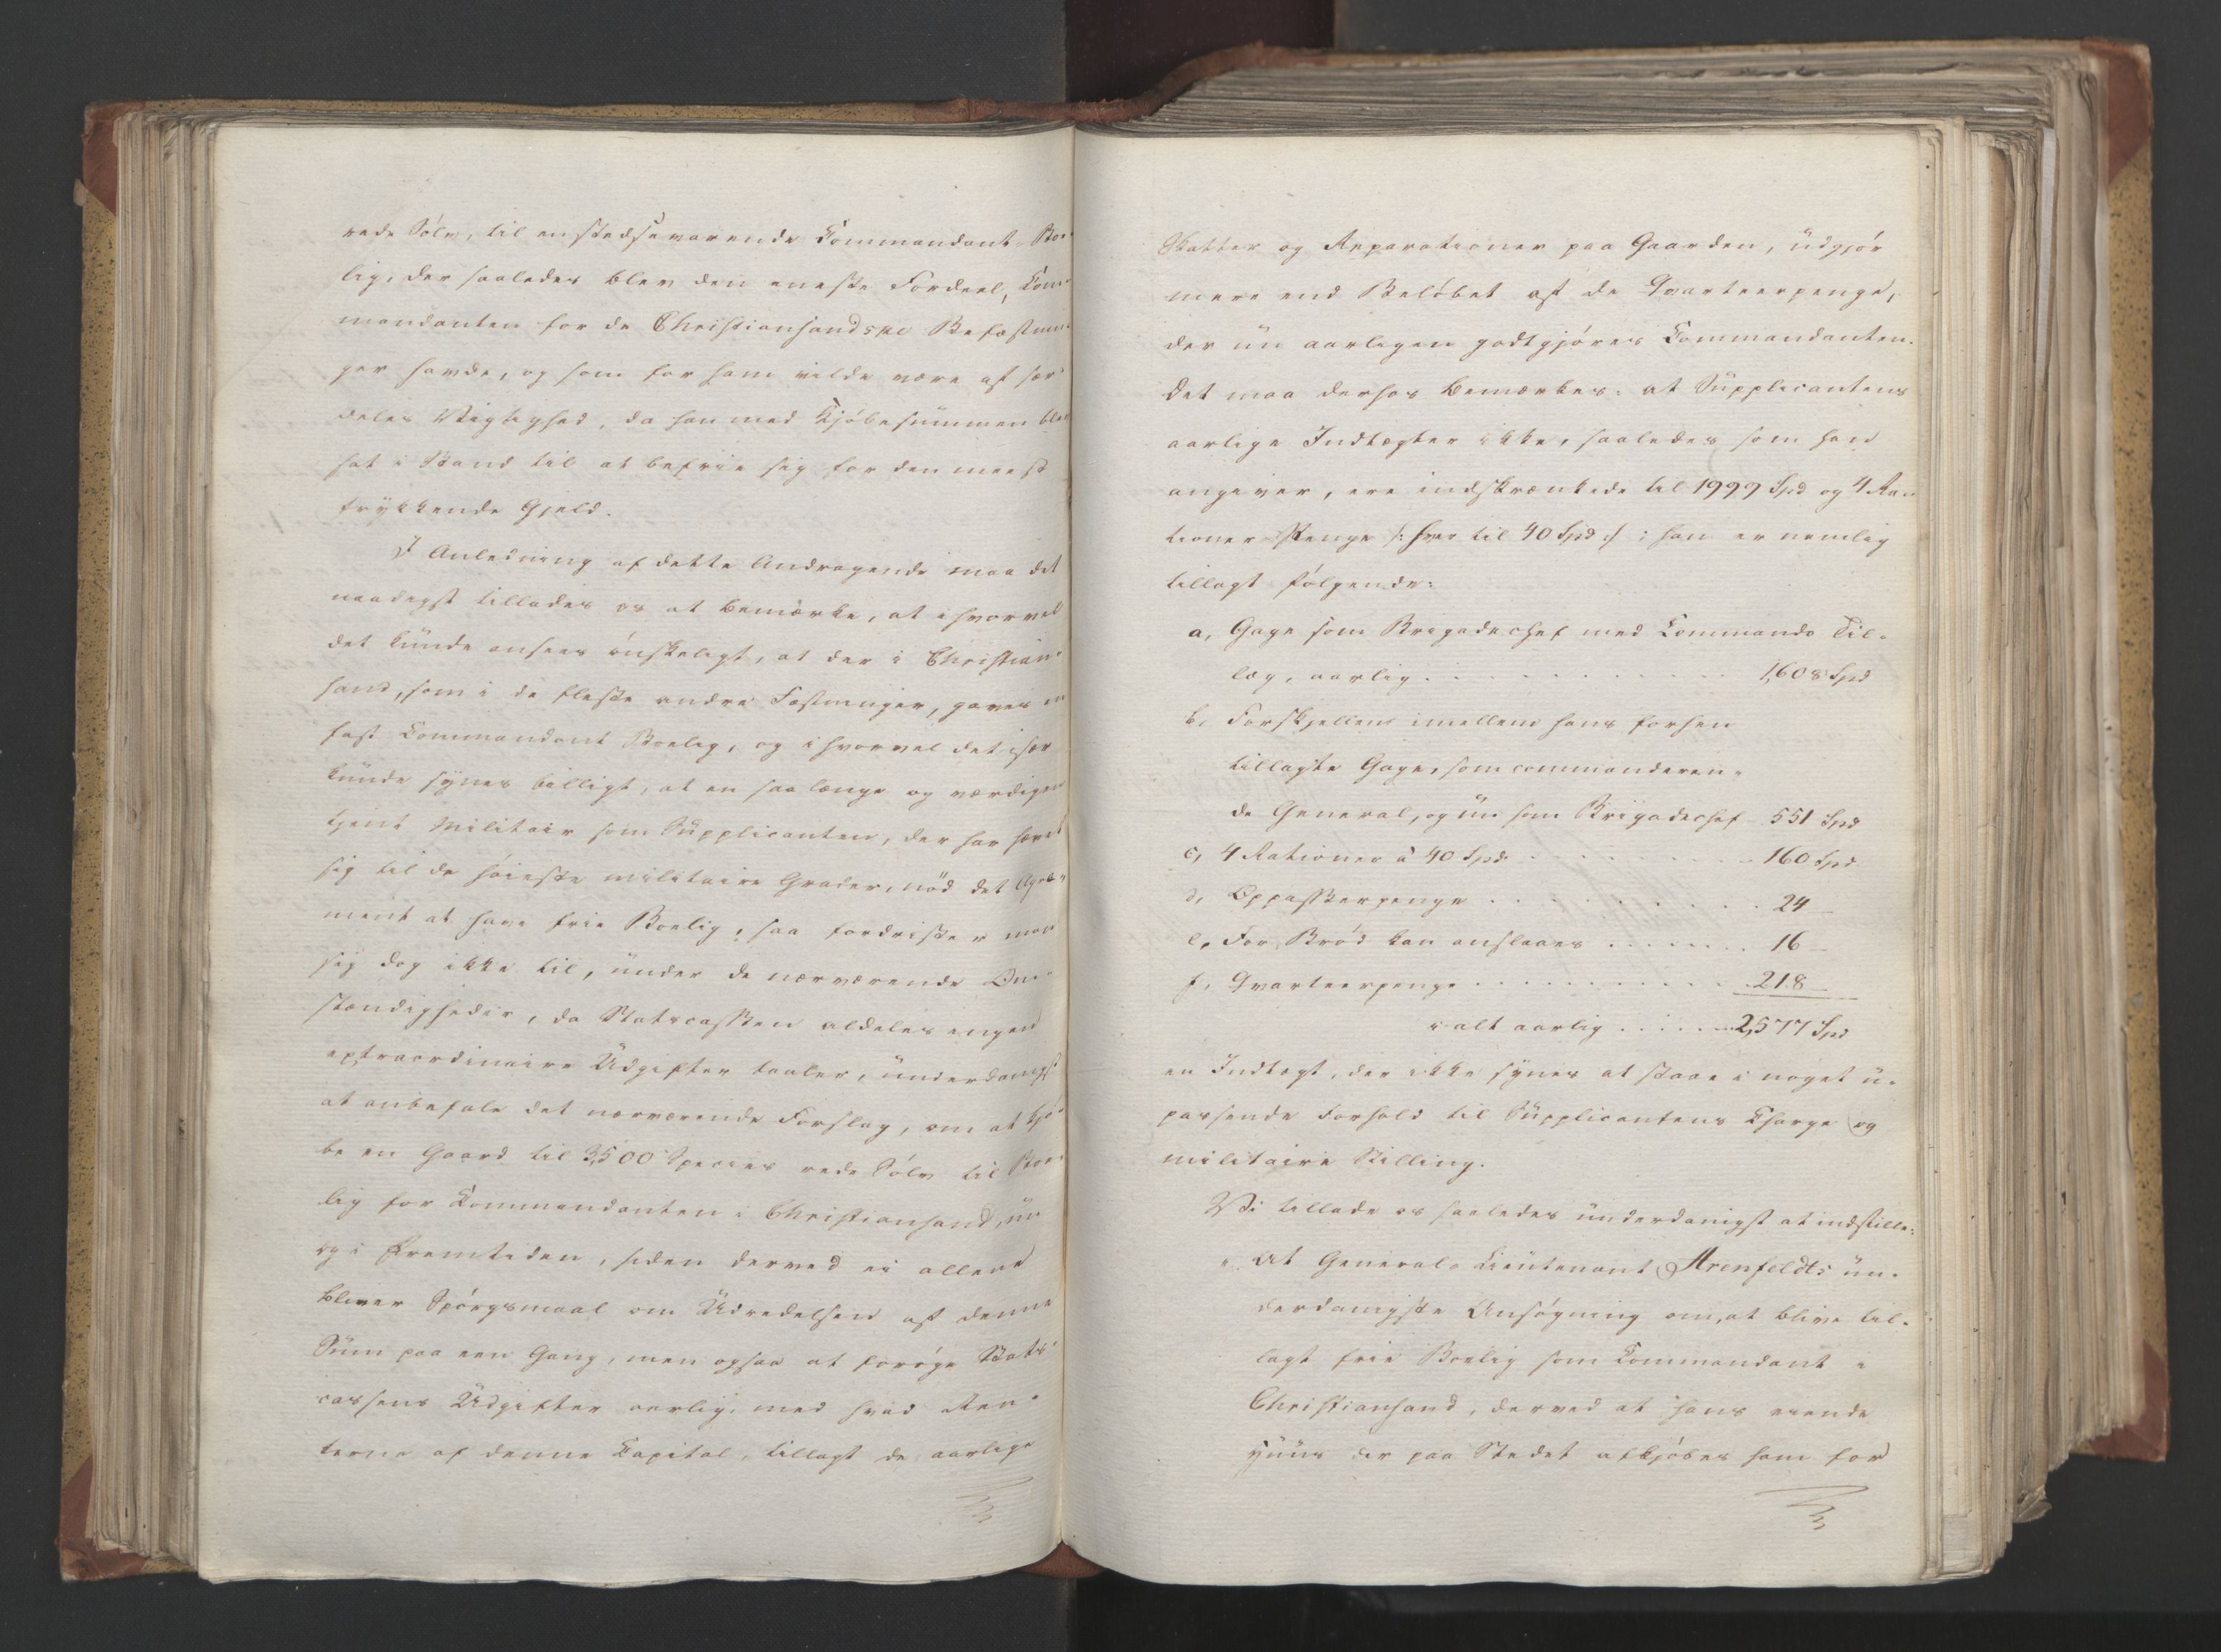 rede Sölv, til en stedsevarende Commandant-Boe-
lig, der saaledes blev den eneste Fordeel, Com-
mandanten for de Christiansandske Befæstnin-
ger havde, og som for ham vilde være af sær-
deles Vigtighed, da han med Kjöbesummen blev
sat i Stand til at befrie sig for den meest
trykkende Gjeld.
I Anledning af dette Andragende maa det
naadigst tillades os at bemærke, at ihvorvel
det kunde ansees önskeligt, at der i Christian-
sand, som i de fleste andre Fæstninger, gaves en
fast Commandant Boelig, og ihvorvel det især
kunde synes billigt, at en saa længe og værdigen
tjent Militair som Supplicanten, der har hævet
sig til de höieste militaire Grader, nöd det Agre-
ment at have frie Boelig, saa fordrister man
sig dog ikke til, under de nærværende Om-
stændigheder, da Statscassen aldeles ingen
extraordinaire Udgifter taaler, underdanigst
at anbefale det nærværende Forslag, om at kjö-
be en Gaard til 3,500 Species rede Sölv til Boe-
lig for Commandanten i Christiansand, nu
og i Fremtiden, siden derved ei allene
bliver Spörgsmaal om Udredelsen af denne
Sum paa een Gang, men ogsaa at foröge Stats-
cassens Udgifter aarlig, med hvad Ren-
terne af denne Capital, tillagt de aarlige
Skatter og Reparationer paa Gaarden, udgjör
mere end Belöbet af de Qvarteerpenge,
der nu aarligen godtgjöres Commandanten.
Det maa derhos bemærkes: at Supplicantens
aarlige Indtægter ikke, saaledes som han
angiver, ere indskrænkede til 1999 Spd og 4 Ra-
tioner Penge /: hver til 40 Spd :/ ; han er nemlig
tillagt fölgende:
a, Gage som Brigadechef med Commando Til-
læg, aarlig . . . . . . . . . . . . 1,608 Spd
b, Forskjellen imellem hans forhen
tillagte Gage, som commanderen-
de General, og nu som Brigadechef 551 Spd
c, 4 Rationer à 40 Spd. . . . . . . . . 160 Spd
d, Oppasserpenge . . . . . . . . . . 24 —
e, For Bröd kan anslaaes . . . . . . . 16 —
f, Qvarteerpenge . . . . . . . . . . 218 —
i alt aarlig . . . . . . 2,577 Spd
en Indtægt, der ikke synes at staae i noget u-
passende Forhold til Supplicantens Charge og
militaire Stilling.
Vi tillade os saaledes underdanigst at indstille:
" At General-Lieutenant Arenfeldts un-
derdanigste Ansögning om, at blive til-
lagt frie Boelig som Commandant i
Christiansand, derved at hans eiende
Huus der paa Stedet afkjöbes ham for